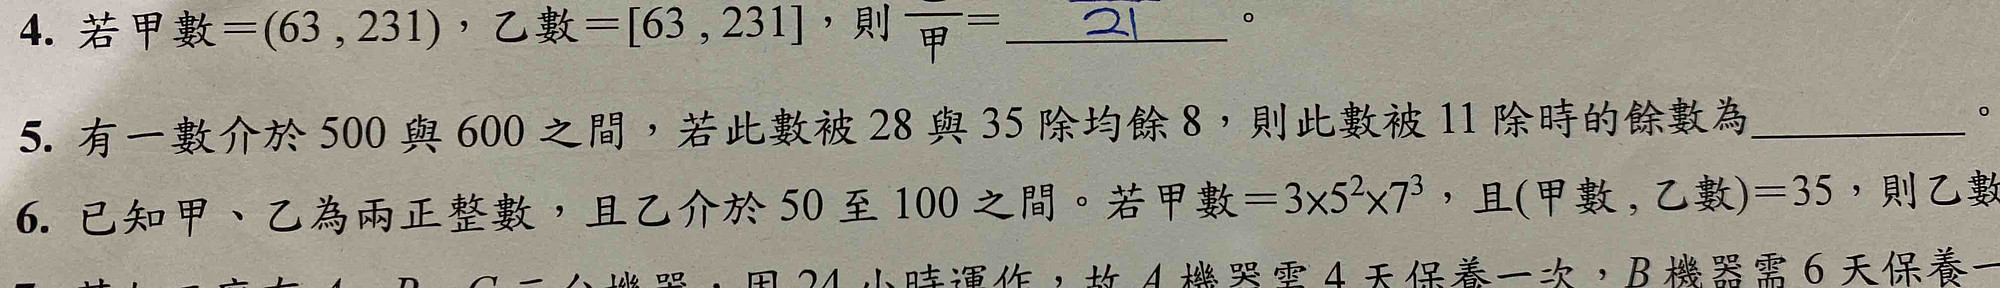 4. 若甲數=(63 , 231),乙數=[63 , 231],則 甲 = 21 。
5. 有一數介於 500 與 600 之間,若此數被 28 與 35 除均餘 8,則此數被 11 除時的餘數為________。
6. 已知甲、乙為兩正整數,且乙介於 50 至 100 之間。若甲數=3×5²×7³,且(甲數 , 乙數)=35,則乙數
機器,因 24 小時運作,故 A 機器需 4 天保養一次,B 機器需 6 天保養一